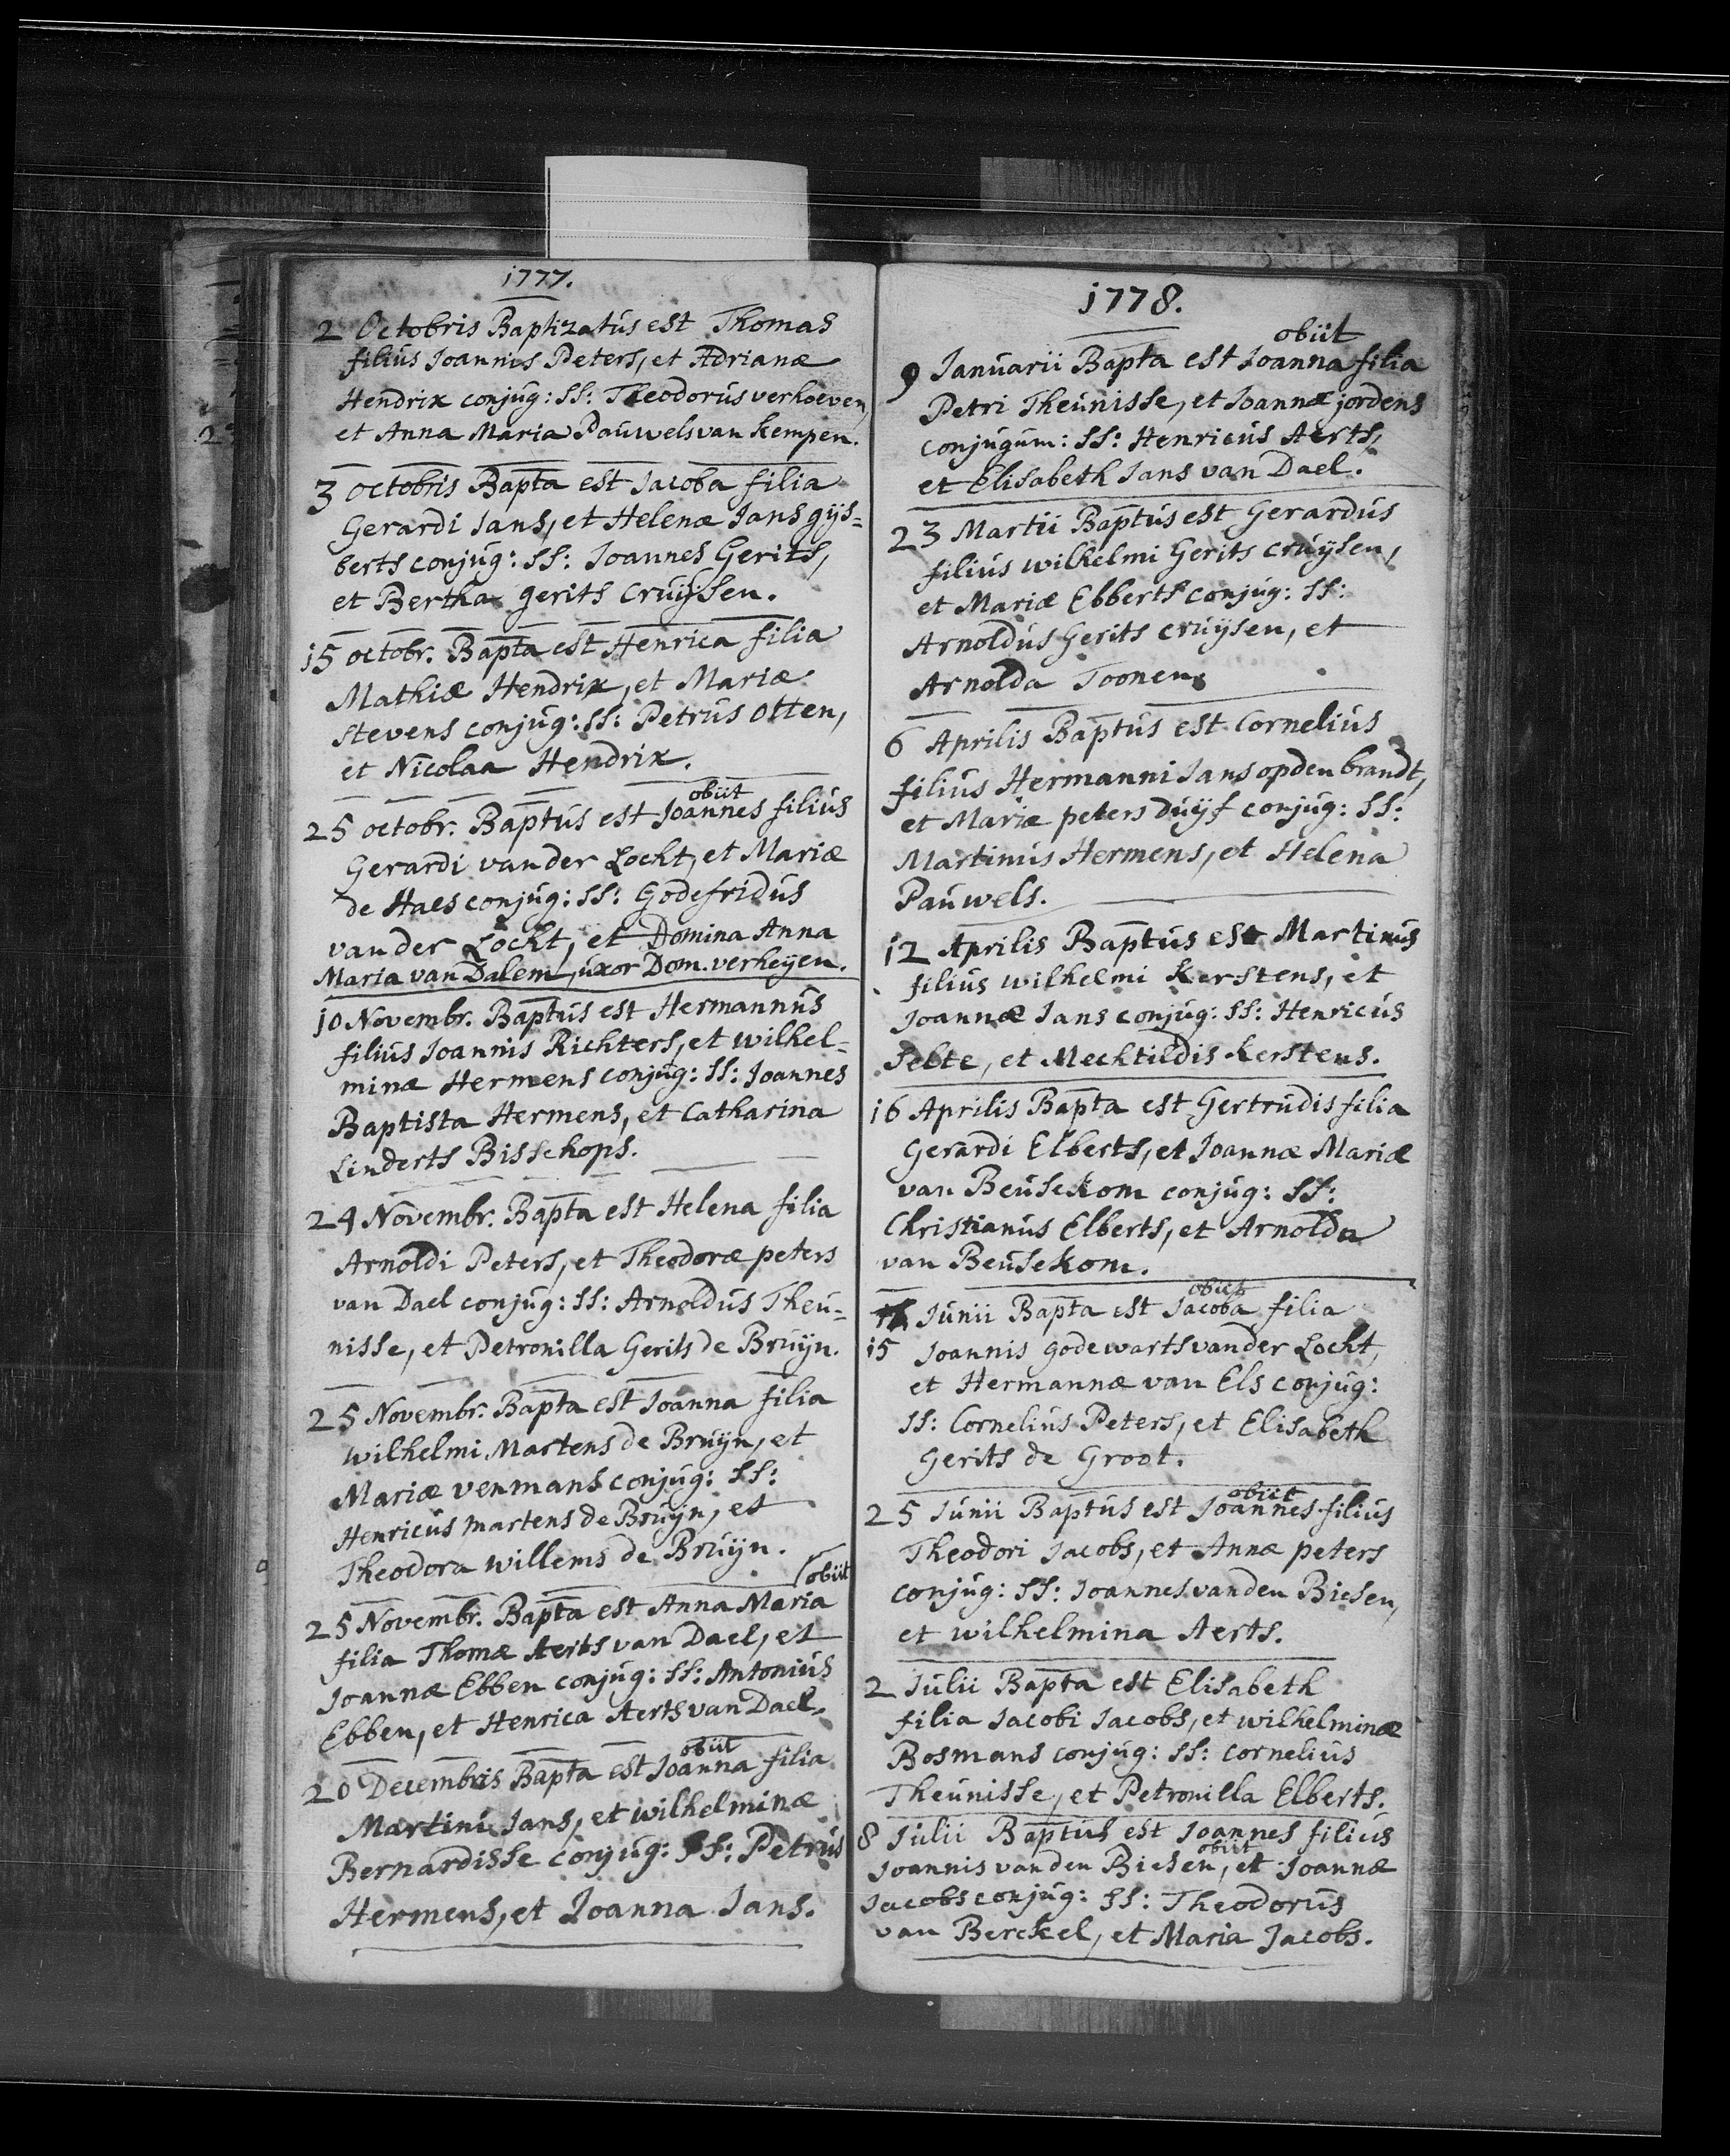 1777.
2 Octobris Baptizatus est Thomas
filius Joannis Peters, et Adrianæ
Hendrix conjug: SS: Theodorus verhoeven,
et Anna Maria Pauwels van Kempen.
3 octobris Bapta est Jacoba filia
Gerardi Jans, et Helenæ Jans gijs=
berts conjug: SS: Joannes Gerits,
et Bertha gerits Cruijsen.
15 octobr. Bapta est Henrica filia
Mathiæ Hendrix, et Mariæ
Stevens conjug: SS: Petrus Otten,
et Nicolaa Hendrix.
obiit
25 octobr. Baptus est Joannes filius
Gerardi van der Locht, et Mariæ
de Haes conjug: SS: Godefridus
van der Locht, et Domina Anna
Maria van Dalem, uxor Dom. verheijen.
10 Novembr. Baptus est Hermannus
filius Joannis Richters, et wilhel=
minæ Hermens conjug: SS: Joannes
Baptista Hermens, et Catharina
Linderts Bisschops.
24 Novembr. Bapta est Helena filia
Arnoldi Peters, et Theodoræ peters
van Dael conjug: SS: Arnoldus Theu=
nisse, et Petronilla Gerits de Bruijn.
25 Novembr. Bapta est Joanna filia
wilhelmi Martens de Bruijn, et
Mariæ venmans conjug: SS:
Henricus martens de Bruijn, et
Theodora willems de Bruijn.
obiit
25 Novembr. Bapta est Anna Maria
filia Thomæ Aerts van Dael, et
Joannæ Ebben conjug: SS: Antonius
Ebben, et Henrica Aerts van Dael.
obiit
20 Decembris Bapta est Joanna filia
Martini Jans, et wilhelminæ
Bernardisse conjug: SS: Petrus
Hermens, et Joanna Jans.
1778.
obiit
9 Januarii Bapta est Joanna filia
Petri Theunisse, et Joannæ jordens
conjugum: SS: Henricus Aerts,
et Elisabeth Jans van Dael.
23 Martii Baptus est Gerardus
filius wilhelmi Gerits cruijsen,
et Mariæ Ebberts conjug: SS:
Arnoldus Gerits cruijsen, et
Arnolda Toonen.
6 Aprilis Baptus est Cornelius
filius Hermanni Jans opden brandt,
et Mariæ peters Duijf conjug: SS:
Martinus Hermens, et Helena
Pauwels.
12 Aprilis Baptus est Martinus
filius wilhelmi Kerstens, et
Joannæ Jans conjug: SS: Henricus
Selte, et Mechtildis Kerstens.
16 Aprilis Bapta est Gertrudis filia
Gerardi Elberts, et Joannæ Mariæ
van Beusekom conjug: SS:
Christianus Elberts, et Arnolda
van Beusekom.
obiit
Junii Bapta est Jacoba filia
15 Joannis godewarts van der Locht,
et Hermannæ van Els conjug:
SS: Cornelius Peters, et Elisabeth
Gerits de Groot.
obiit
25 Junii Baptus est Joannes filius
Theodori Jacobs, et Annæ peters
conjug: SS: Joannes van den Biesen,
et wilhelmina Aerts.
2 Julii Bapta est Elisabeth
filia Jacobi Jacobs, et wilhelminæ
Bosmans conjug: SS: cornelius
Theunisse, et Petronilla Elberts.
8 Julii Baptus est Joannes filius
obiit
Joannis van den Biesen, et Joannæ
Jacobs conjug: SS: Theodorus
van Berckel, et Maria Jacobs.